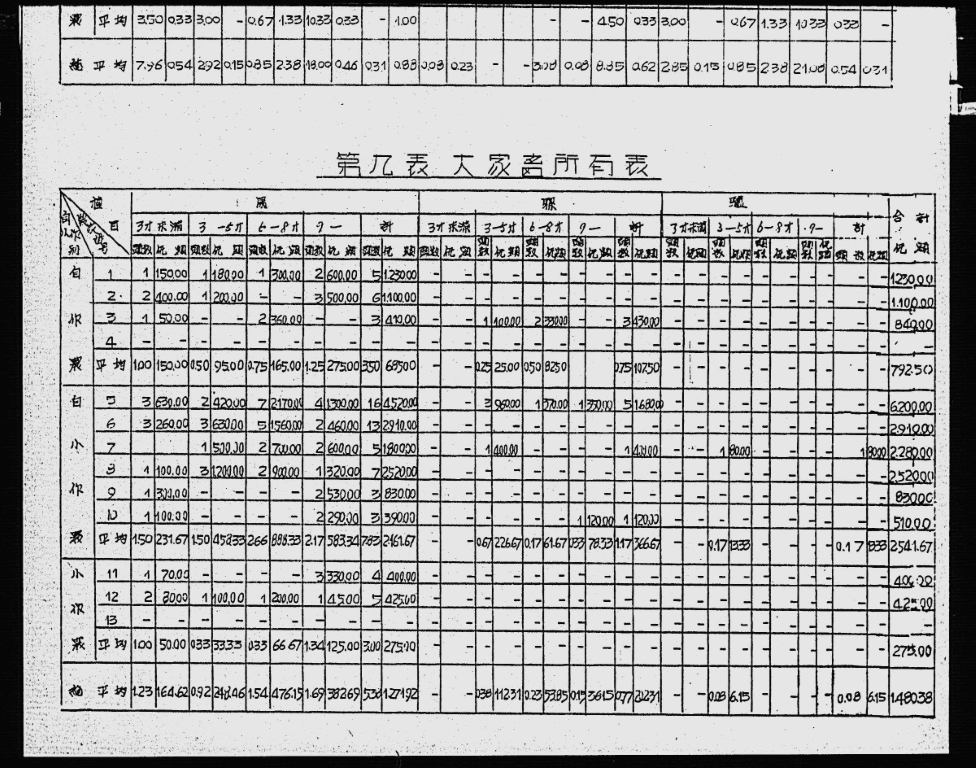 平均 3.50 0.33 3.00 - 0.67 1.33 10.33 0.33 - 1.00 - - 4.50 0.33 3.00 - 0.67 1.33 10.33 0.33 -
平均 7.96 0.54 2.92 0.15 0.85 2.38 18.00 0.46 0.31 0.88 0.08 0.23 - - 3.08 0.08 8.85 0.62 2.85 0.15 0.85 2.38 21.08 0.54 0.31
第九表 大家畜所有表
種 目 馬 騾 驢 合計
3才未満 3-5才 6-8才 9- 計 3才未満 3-5才 6-8才 9- 計 3才未満 3-5才 6-8才 9- 計
自 1 1 150.00 1 180.00 1 300.00 2 600.00 5 1230.00 - - - - - - - - - - - - - - - - - - - - 1230.00
2 2 400.00 1 200.00 - - 3 500.00 6 1,100.00 - - - - - - - - - - - - - - - - - - - - 1,100.00
作 3 1 50.00 - - 2 360.00 - - 3 410.00 - - 1 100.00 2 330.00 - - 3 430.00 - - - - - - - - - - 840.00
4 - - - - - - - - - - - - - - - - - - - - - - - - - - - - - - -
平均 1.00 150.00 0.50 95.00 0.75 165.00 1.25 275.00 3.50 685.00 - - 0.25 25.00 0.50 82.50 0.75 107.50 - - - - - - - - - - 792.50
自 5 3 630.00 2 420.00 7 2170.00 4 1300.00 16 4520.00 - - 3 960.00 1 370.00 1 350.00 5 1,680.00 - - - - - - - - - - 6200.00
6 3 260.00 3 630.00 5 1560.00 2 460.00 13 2910.00 - - - - - - - - - - - - - - - - - - - - 2910.00
小 7 1 500.00 2 700.00 2 600.00 5 1800.00 - - 1 400.00 - - - - 1 400.00 - - 1 80.00 - - - - 1 80.00 2,280.00
8 1 100.00 3 1200.00 2 900.00 1 320.00 7 2520.00 - - - - - - - - - - - - - - - - - - - - 2,520.00
作 9 1 300.00 - - - - 2 530.00 3 830.00 - - - - - - - - - - - - - - - - - - - - 830.00
10 1 100.00 - - - - 2 290.00 3 390.00 - - - - - - 1 120.00 1 120.00 - - - - - - - - - - 510.00
平均 1.50 231.67 1.50 458.33 2.66 888.33 2.17 583.34 7.83 2161.67 - - 0.67 226.67 0.17 61.67 0.33 78.33 1.17 366.67 - - 0.17 13.33 - - - - 0.17 13.33 2541.67
小 11 1 70.00 - - - - 3 330.00 4 400.00 - - - - - - - - - - - - - - - - - - - - 400.00
12 2 80.00 1 100.00 1 200.00 1 45.00 5 425.00 - - - - - - - - - - - - - - - - - - - - 425.00
13 - - - - - - - - - - - - - - - - - - - - - - - - - - - - - - -
平均 1.00 50.00 0.33 33.33 0.33 66.67 1.34 125.00 3.00 275.00 - - - - - - - - - - - - - - - - - - - - 275.00
平均 1.23 164.62 0.92 248.46 1.54 476.15 1.69 382.69 5.38 1271.92 - - 0.38 112.31 0.23 53.85 0.15 36.15 0.77 202.31 - - 0.08 6.15 - - - - 0.08 6.15 1,480.38